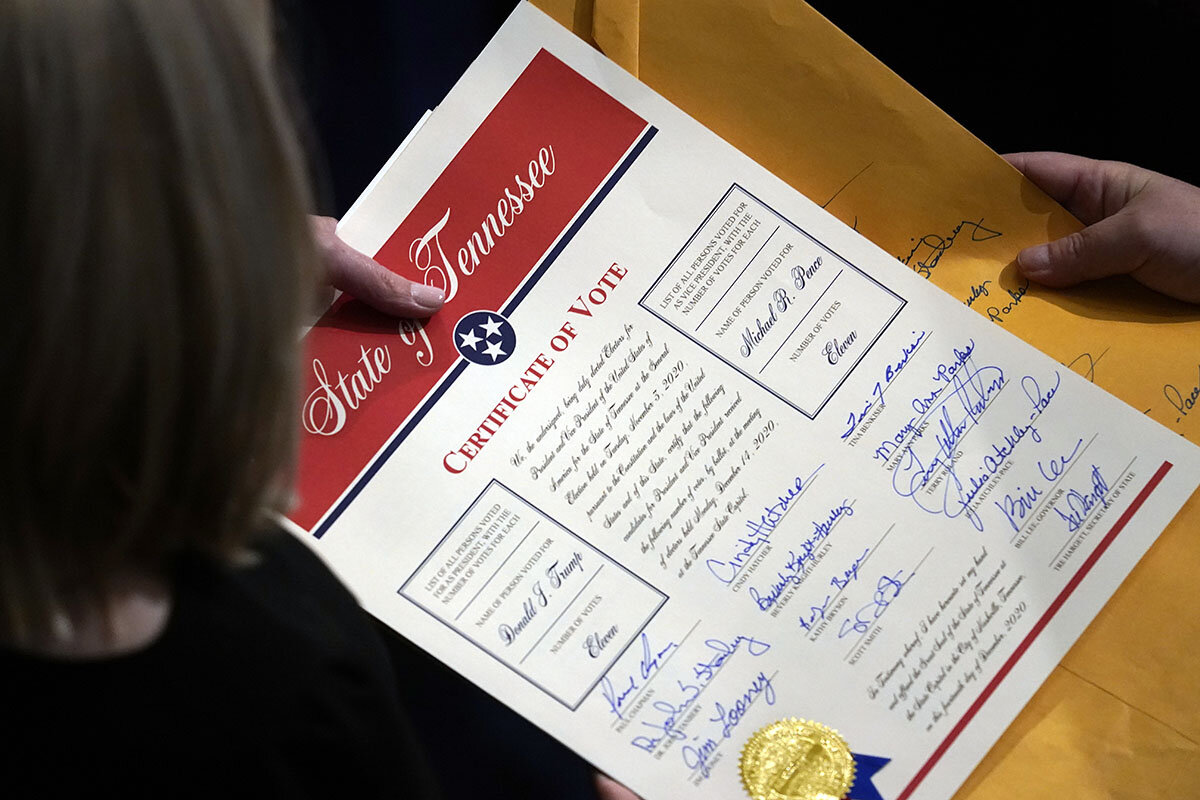 State of Tennessee
CERTIFICATE OF VOTE
We, the undersigned, being duly elected Electors for
President and Vice President of the United States of
America for the State of Tennessee at the General
Election held on Tuesday, November 3, 2020
pursuant to the Constitution and the laws of the United
States and of this State, certify that the following
candidates for President and Vice President received
the following number of votes, by ballot, at the meeting
of electors held Monday, December 14, 2020,
at the Tennessee State Capitol.
LIST OF ALL PERSONS VOTED
FOR AS PRESIDENT, WITH THE
NUMBER OF VOTES FOR EACH
NAME OF PERSON VOTED FOR
Donald J. Trump
NUMBER OF VOTES
Eleven
LIST OF ALL PERSONS VOTED FOR
AS VICE PRESIDENT, WITH THE
NUMBER OF VOTES FOR EACH
NAME OF PERSON VOTED FOR
Michael R. Pence
NUMBER OF VOTES
Eleven
Paul Chapman
PAUL CHAPMAN
Dr. John Stanbery
DR. JOHN STANBERY
Jim Looney
JIM LOONEY
Cindy Hatcher
CINDY HATCHER
Beverly Knight-Hurley
BEVERLY KNIGHT-HURLEY
KATHY BRYSON
SCOTT SMITH
Tina F Benkiser
TINA BENKISER
Mary Ann Parks
MARY ANN PARKS
TERRY ROLAND
Julia Atchley-Pace
JULIA ATCHLEY-PACE
Bill Lee
BILL LEE, GOVERNOR
Tre Hargett
TRE HARGETT, SECRETARY OF STATE
In Testimony whereof, I have hereunto set my hand
and affixed the Great Seal of the State of Tennessee at
the State Capitol in the City of Nashville, Tennessee,
on this fourteenth day of December, 2020
Parks
-Pace